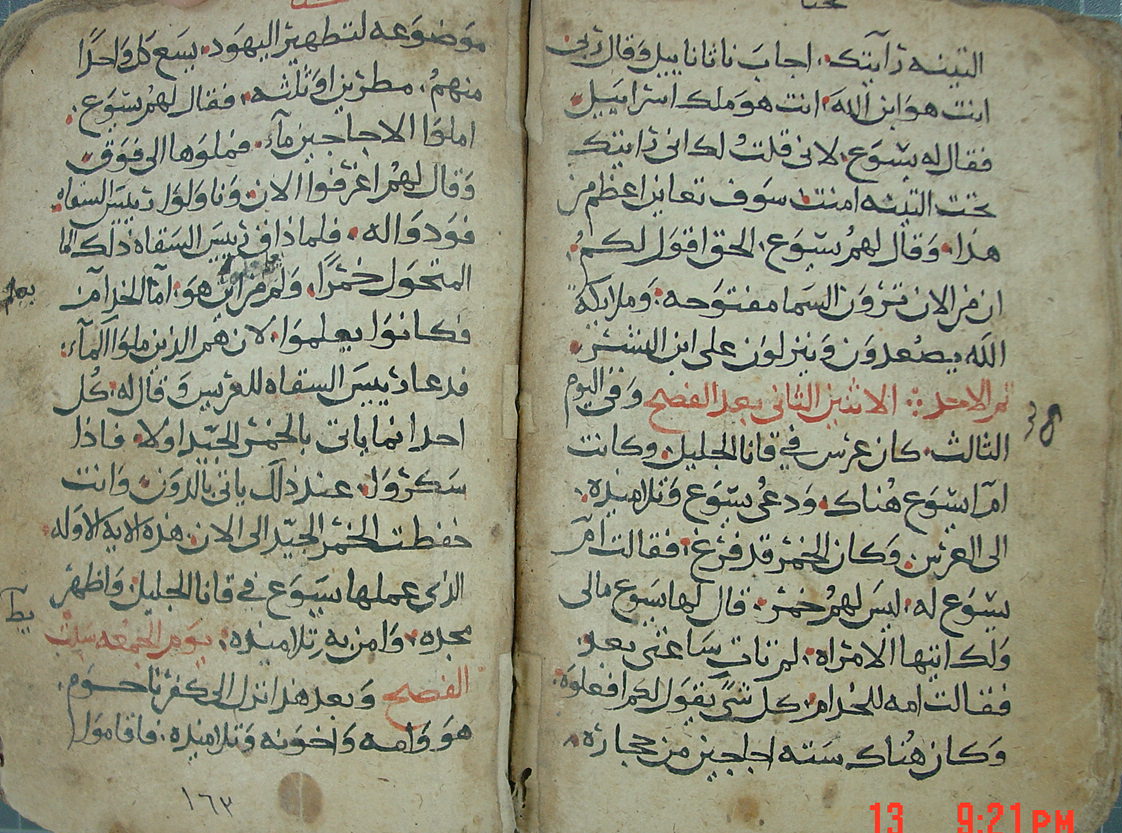 تحت
التينه رايتك. اجاب ناثاناييل وقال ربى
انت هو ابن الله. انت هو ملك اسراييل
فقال له يسوع. لانى قلت لك انى رايتك
تحت التينه امنت سوف تعاين اعظم من
هذا. وقال لهم يسوع. الحق اقول لكم
ان من الان ترون السما مفتوحه. وملايكة
الله يصعدون وينزلون على ابن البشر.
تم الاحد. الاثنين الثانى بعد الفصح وفى اليوم
38
الثالث. كان عرس في قانا الجليل. وكانت
ام يسوع هناك. ودعى يسوع وتلاميذه.
الى العرس. وكان الخمر قد فرغ. فقالت ام
يسوع له. ليس لهم خمر. قال لها يسوع مالى
ولك ايتها الامراه. لم تات ساعتى بعد
فقالت امه للخدام. كل شي يقول لكم افعلوه.
وكان هناك سته اجاجين من حجاره
موضوعه لتطهير اليهود. يسع كل واحدًا
منهم. مطرين او ثلثه. فقال لهم يسوع.
املوا الاجاجين مآء. فملوها الى فوق
وقال لهم اغرفوا الان. وناولوا رييس السقاه
فودوا له. فلما ذاق رييس السقاه ذلك الما
المتحول خمرًا. ولم من اين هو. اما الخدام
يعلم
فكانوا يعلموا. لان هم الذين ملوا المآء.
فدعا رييس السقاه للعريس وقال له. كل
احد انما ياتى بالخمر الجيد اولا. فاذا
سكروا. عند ذلك ياتى بالدون. وانت
حفظت الخمر الجيد الى الان. هذه الايه الاوله
الذى عملها يسوع في قانا الجليل. واظهر
مجده. وامن به تلاميذه. يوم الجمعه
الفصح وبعد هذا نزل الى كفرناحوم.
هو وامه واخوته وتلاميذه. فاقاموا
١٦٣
13 9:21 PM